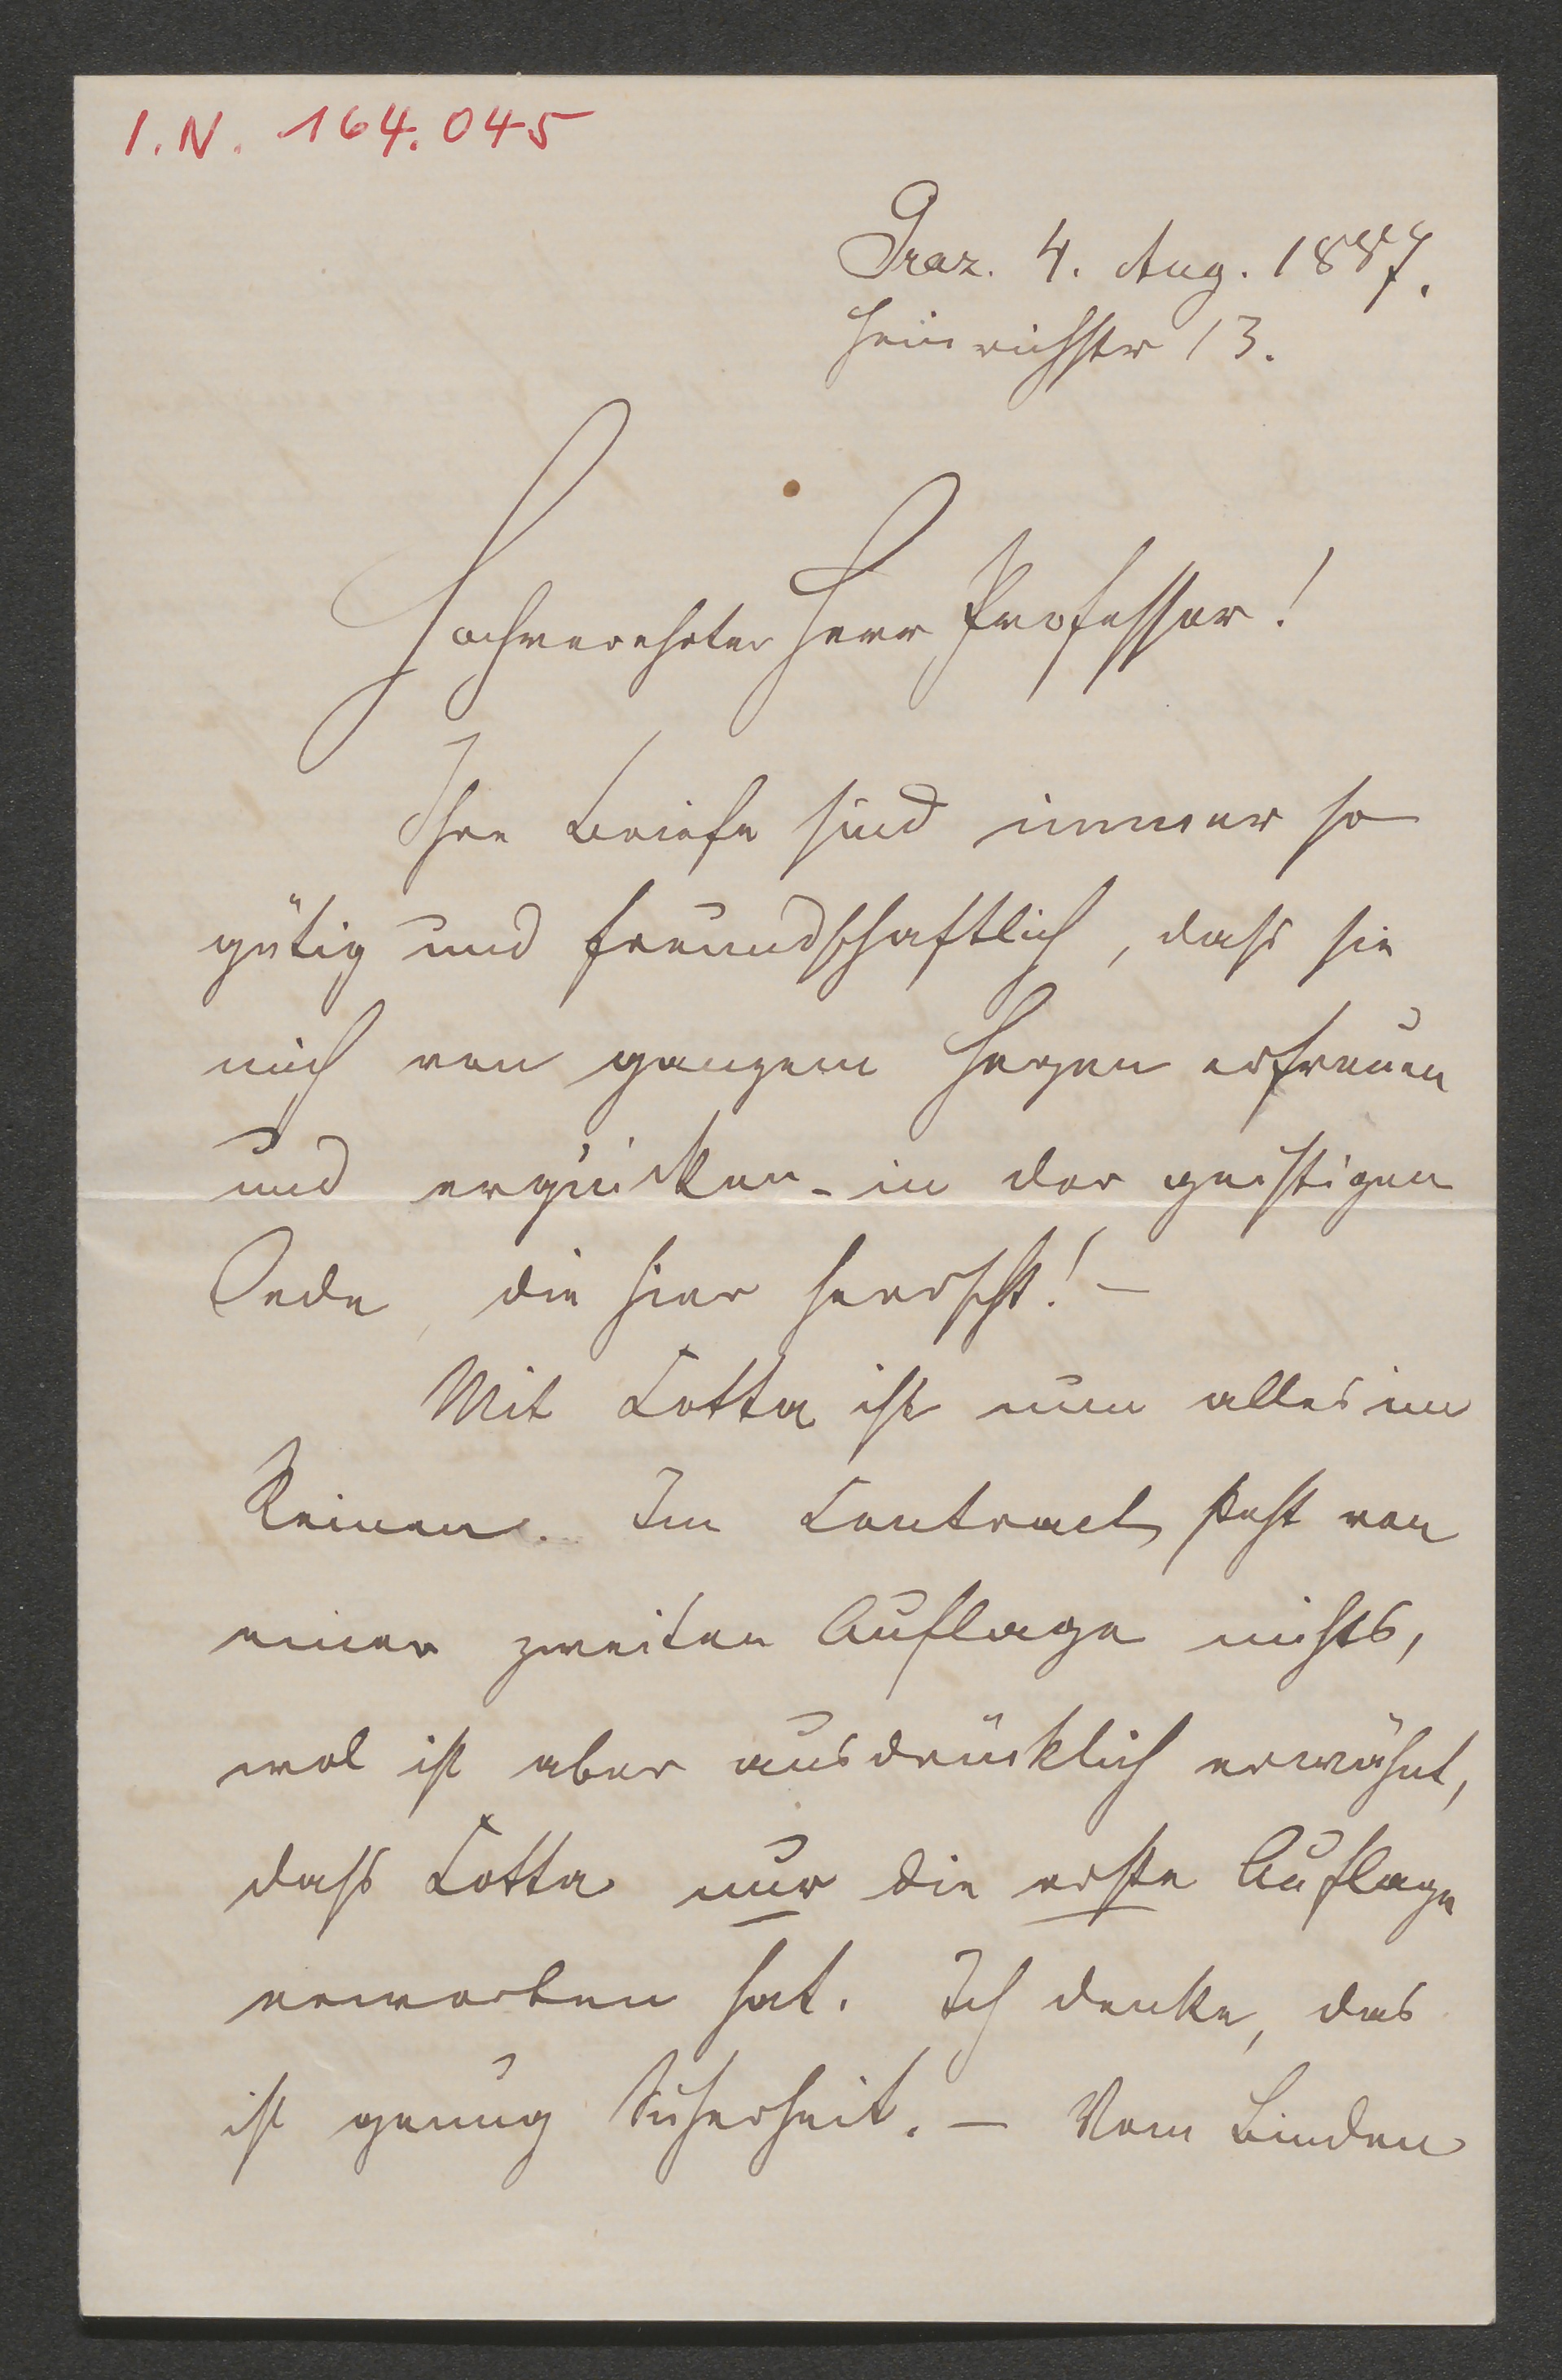 I.N. 164.045
Graz. 4. Aug. 1887.
Heinrichstr 13.
Hochverehrter Herr Professor!
Ihre Briefe sind immer so
gütig und freundschaftlich, dass sie
mich von ganzem Herzen erfreuen
und erquicken - in der geistigen
Oede, die hier herrscht! –
Mit Cotta ist nun alles im
Reinen. Im Contract steht von
einer zweiten Auflage nichts,
wol ist aber ausdrücklich erwähnt,
dass Cotta nur die erste Auflage
erworben hat. Ich denke, das
ist genug Sicherheit. – Vom Binden